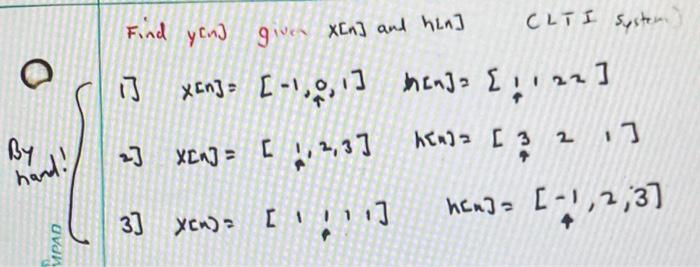 Find y[n] given x[n] and h[n] (LTI System)
1] x[n]= [-1,0,1] h[n]= [ 1 1 2 2 ]
By hand!
2] x[n]= [ 1,2,3] h[n]= [ 3 2 1 ]
3] x[n]= [ 1 1 1 1 ] h[n]= [-1,2,3]
MPAD